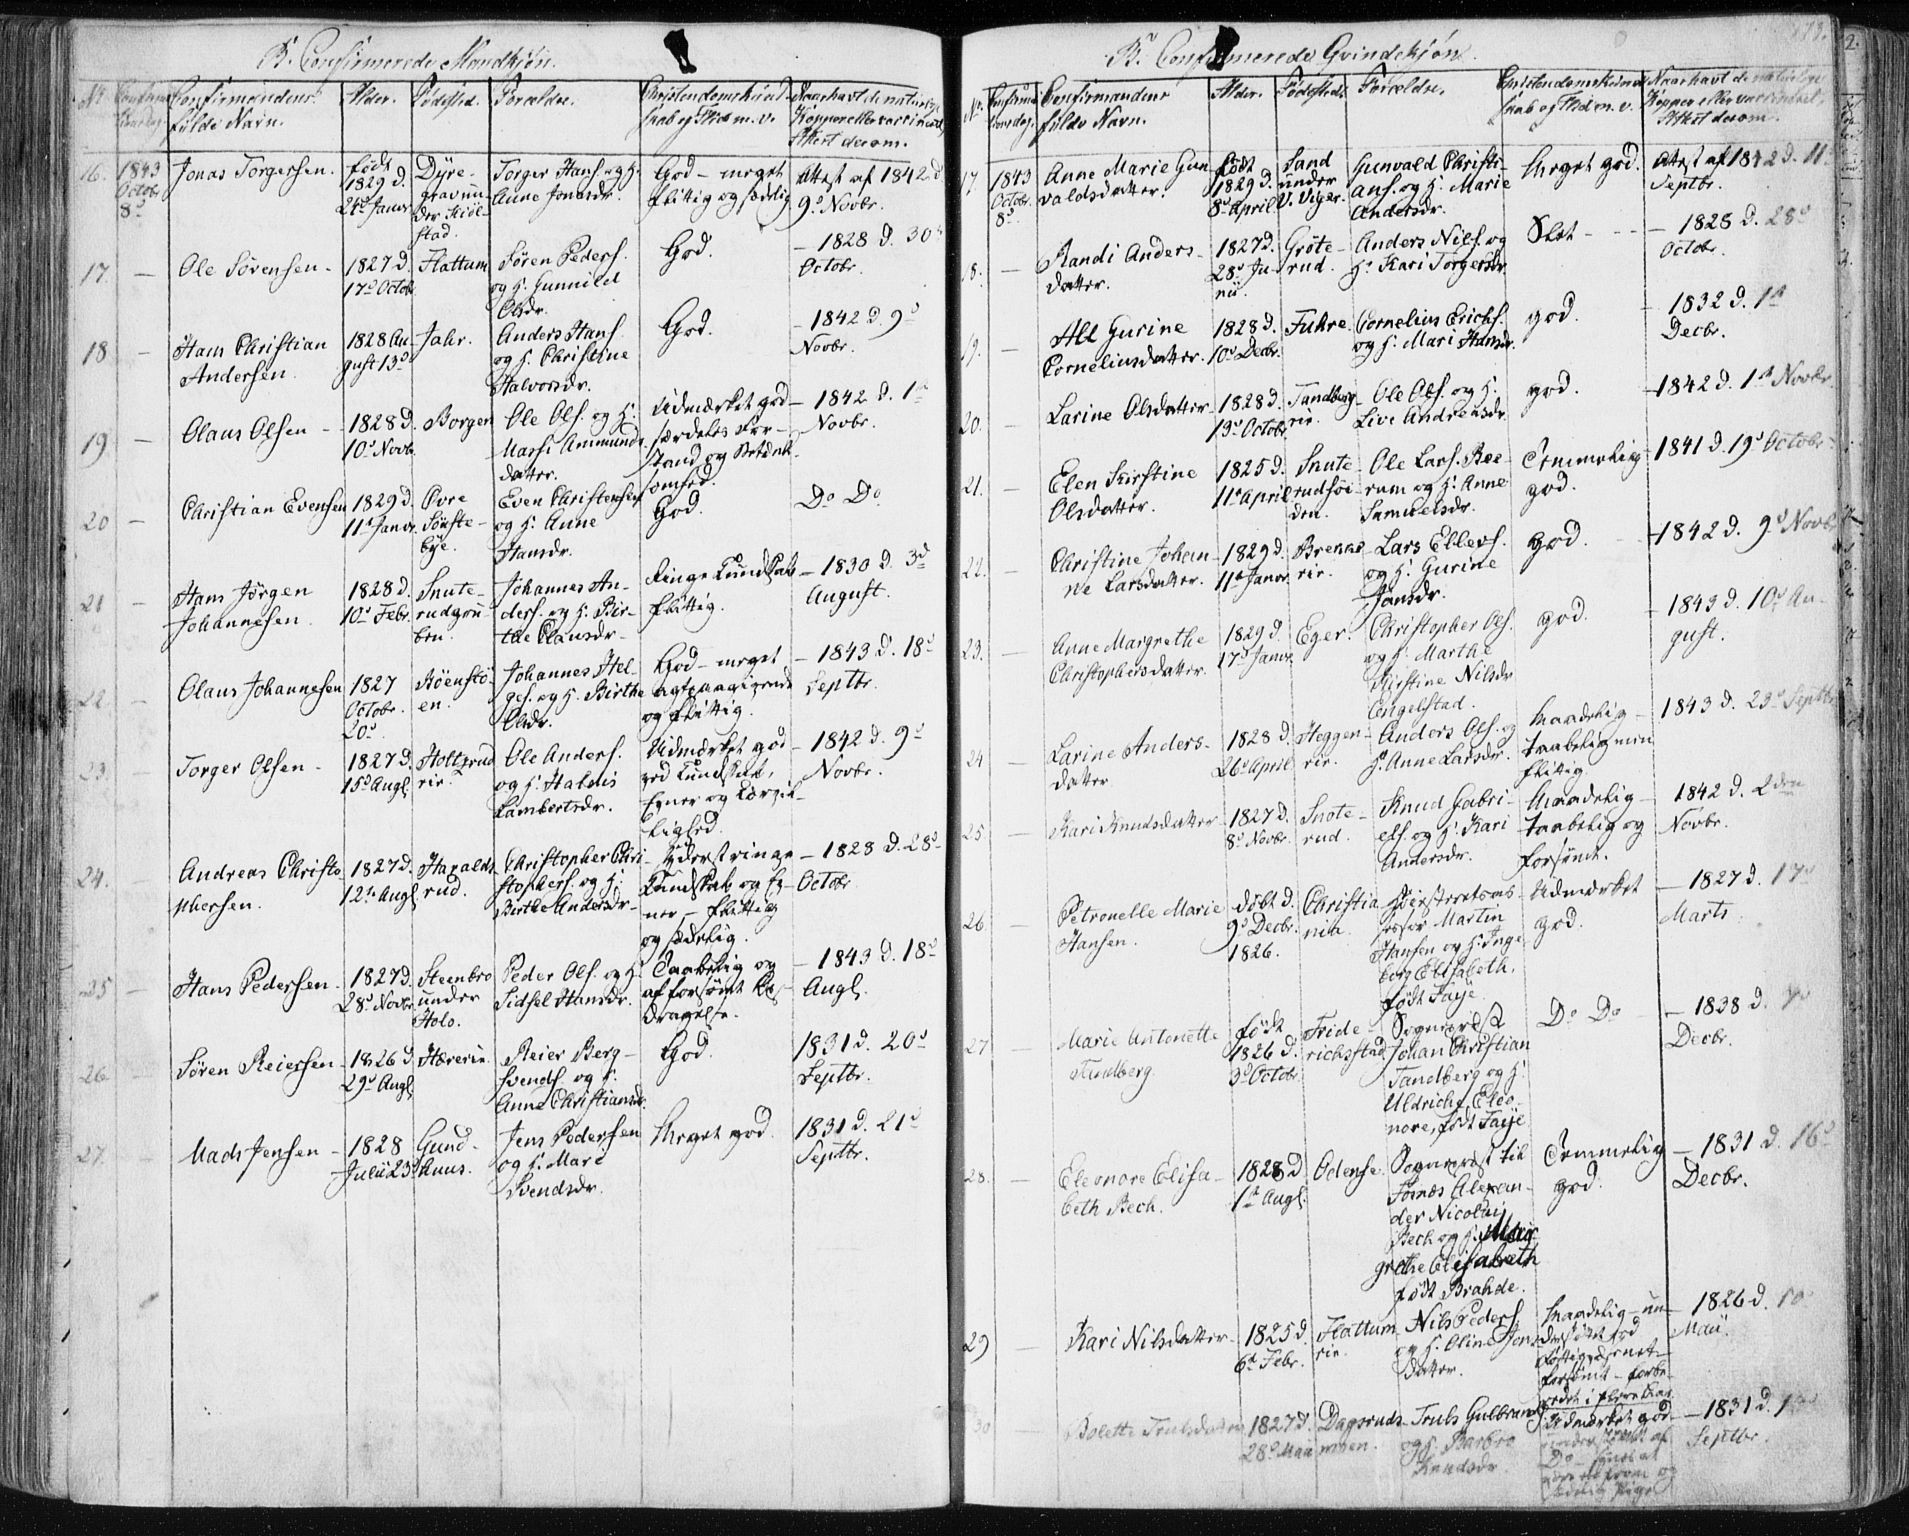 B. Confirmerede Mandkjön.
No.
Confirmandens
fulde Navn.
Alder.
Fødested.
Forældre.
Christendomskund-
skab og Flid m. v.
Naar havt de naturlige
Kopper eller vaccineret,
Attest derom.
16.
1843
Octobr
8d
Jonas Torgersen.
født
1829 d.
24d Januar
Dyre-
grav un-
der Kiöl-
stad.
Torger Hans. og H.
Anne Jonasdr.
God - meget
flittig og sædelig
Attest af 1842 d
9d Novbr.
17. -
Ole Sörensen -
1827 d.
17d Octobr
Flattum
Sören Peders.
og H. Gunnild
Olsdr.
God.
- 1828 d. 30d
Octobr.
18 -
Hans Christian
Andersen.
1828 Au-
gust 13d
Jahr.
Anders Hans.
og H. Christine
Halvorsdr.
God.
- 1842 d. 9d
Novbr.
19 -
Olaus Olsen -
1828 d.
10d Novb.
Borgen
Ole Ols. og H.
Massi Ammunds
datter.
Udmærket god
særdeles For-
stand og Betænk-
somhed.
- 1842 d. 1st
Novbr.
20 -
Christian Evensen
1829 d.
11t Januar
Övre
Sönste-
bye.
Even Christensen
og H. Anne
Hansdr.
God.
Do Do
21 -
Hans Jörgen
Johannesen.
1828 d.
10d Febr.
Snute-
rudgru-
ben.
Johannes An-
ders. og H. Bir-
the Clausdr.
Ringe Kundskab
flittig.
- 1830 d. 3d
August.
22 -
Olaus Johannesen
1827
Octobr.
20d
Röenstö-
en.
Johannes Hel-
ges. og H. Birthe
Olsdr.
God - meget
agtpaagivende
og flittig.
- 1843 d. 18d
Septbr.
23. -
Torger Olsen -
1827 d.
15d Augl.
Holtzrud
eie.
Ole Anders.
og H. Haldis
Lambertsdr.
Udmærket god
ved Kundskab,
Evner og Lærvil-
lighed.
- 1842 d. 9d
Novbr.
24. -
Andreas Christo-
phersen.
1827 d.
12te Augl.
Haralds
rud.
Christopher Chri-
stophers. og H.
Birthe Andersdr.
Yderst ringe
Kundskab og Ev-
ner - flittig
og sædelig.
- 1828 d. 28d
Octobr
25 -
Hans Pedersen -
1827 d.
28d Novbr
Steenbro
under
Holo.
Peder Ols. og H.
Sidsel Hansdr.
Taabelig og
af forsömt Op-
dragelse.
- 1843 d. 18d
Augl.
26 -
Sören Reiersen -
1826 d.
29d Augl.
Hæreie.
Reier Berg-
svends. og H.
Anne Christiansdr.
God.
1831 d. 20d
Septbr.
27. -
Mads Jensen -
1828
Julii 23d
Gund-
huus.
Jens Pedersen
og H. Mari
Svendsdr.
Meget god.
1831 d. 21d
Septbr.
B. Confirmerede Qvindekjön.
No.
Confirma-
tionsdag.
Confirmandens
fulde Navn.
Alder.
Fødested.
Forældre.
Christendomskund-
skab og Flid m. v.
Naar havt de naturlige
Kopper eller vaccineret,
Attest derom.
17.
1843
Octobr.
8d
Anne Marie Gun-
valdsdatter.
født
1829 d.
8d April
Sand
under
V. Viger.
Gunvald Christi-
ans. og H. Marie
Andersdr.
Meget god.
Attest af 1842 d. 11
Septbr.
18. -
Randi Anders-
datter.
1827 d.
28d Ju-
nii.
Gröte-
rud.
Anders Nils. og
H. Kari Torgersdr.
Slet -
- 1828 d. 28d
Octobr.
19. -
Alt Gurine
Corneliusdatter.
1828 d.
10d Decbr.
Fuhre.
Cornelius Erichs.
og H. Mari Hansdr.
god.
- 1832 d. 1st
Decbr.
20. -
Larine Olsdatter
1828 d.
19d Octobr
Tandberg-
eie.
Ole Ols. og H.
Live Andreasdr.
god.
- 1842 d. 1st Novbr.
21. -
Elen Kirstine
Olsdatter.
1825 d.
11t April
Snute-
rudsöi-
den.
Ole Lars. Ree-
rum og H. Anne
Samuelsdr.
Temmelig
god.
1841 d. 19d Octobr.
22. -
Christine Johan-
ne Larsdatter.
1829 d.
11t Januar
Brenne-
eie.
Lars Ellevs.
og H. Gurine
Jonsdr.
god.
- 1842 d. 9d Novb.
23. -
Anne Margrethe
Christophersdatter.
1829 d.
17d Januar
Eger.
Christopher Ols.
og H. Marthe
Kirstine Nilsdr
Engelstad.
god.
- 1843 d. 10d Au-
gust.
24 -
Larine Anders-
datter
1828 d.
26d April
Heggen-
eie.
Anders Ols. og
H. Anne Larsdr.
Maadelig -
taabelig men
flittig.
1843 d. 23d Septbr
25 -
Kari Knudsdatter
1827 d.
8d Novbr.
Snote-
rud.
Knud Gabri-
els. og H. Kari
Andersdr.
Maadelig -
taabelig og
forsömt.
1842 d. 2den
Novbr.
26 -
Petronelle Marie
Hansen.
døbt d.
9d Decbr.
1826.
Christia-
nia.
Höiesteretsas-
sessor Martin
Hansen og H. Inge-
borg Elisabeth,
født Faye.
Udmærket
god.
- 1827 d. 17d
Marts.
27 -
Marie Antonette
Tandberg.
født
1826 d.
3d Octobr
Fride-
richsstad
Sognepræst
Johan Christian
Tandberg og H.
Uldriche Eleo-
nore, født Faye
Do Do
- 1838 d.
Decbr.
28. -
Eleonore Elisa-
beth Bech.
1828 d
1st Augl.
Odense.
Sognepræst til
Sörnæs Alexan-
der Nicolay
Bech og H. Mar-
grethe Elisabeth
født Brahde.
Temmelig
god.
- 1831 d. 16d
Decbr.
29 -
Kari Nilsdatter
1825 d.
6d Febr.
Flattum
eie.
Nils Peders.
og H. Oline Jens-
datter.
Maadelig - un-
derstöttet
forsömt - forbe-
redet i flere Aar
- 1826 d. 10
Maii.
30
Bolette Trulsdatter
1827 d.
28d Maii
Dagsruds-
moen.
Truls Gulbrands
og H. Barbro
Knudsdr.
Udmærket god
understöttet af
Do -
- 1831 d. 13d
Septbr.